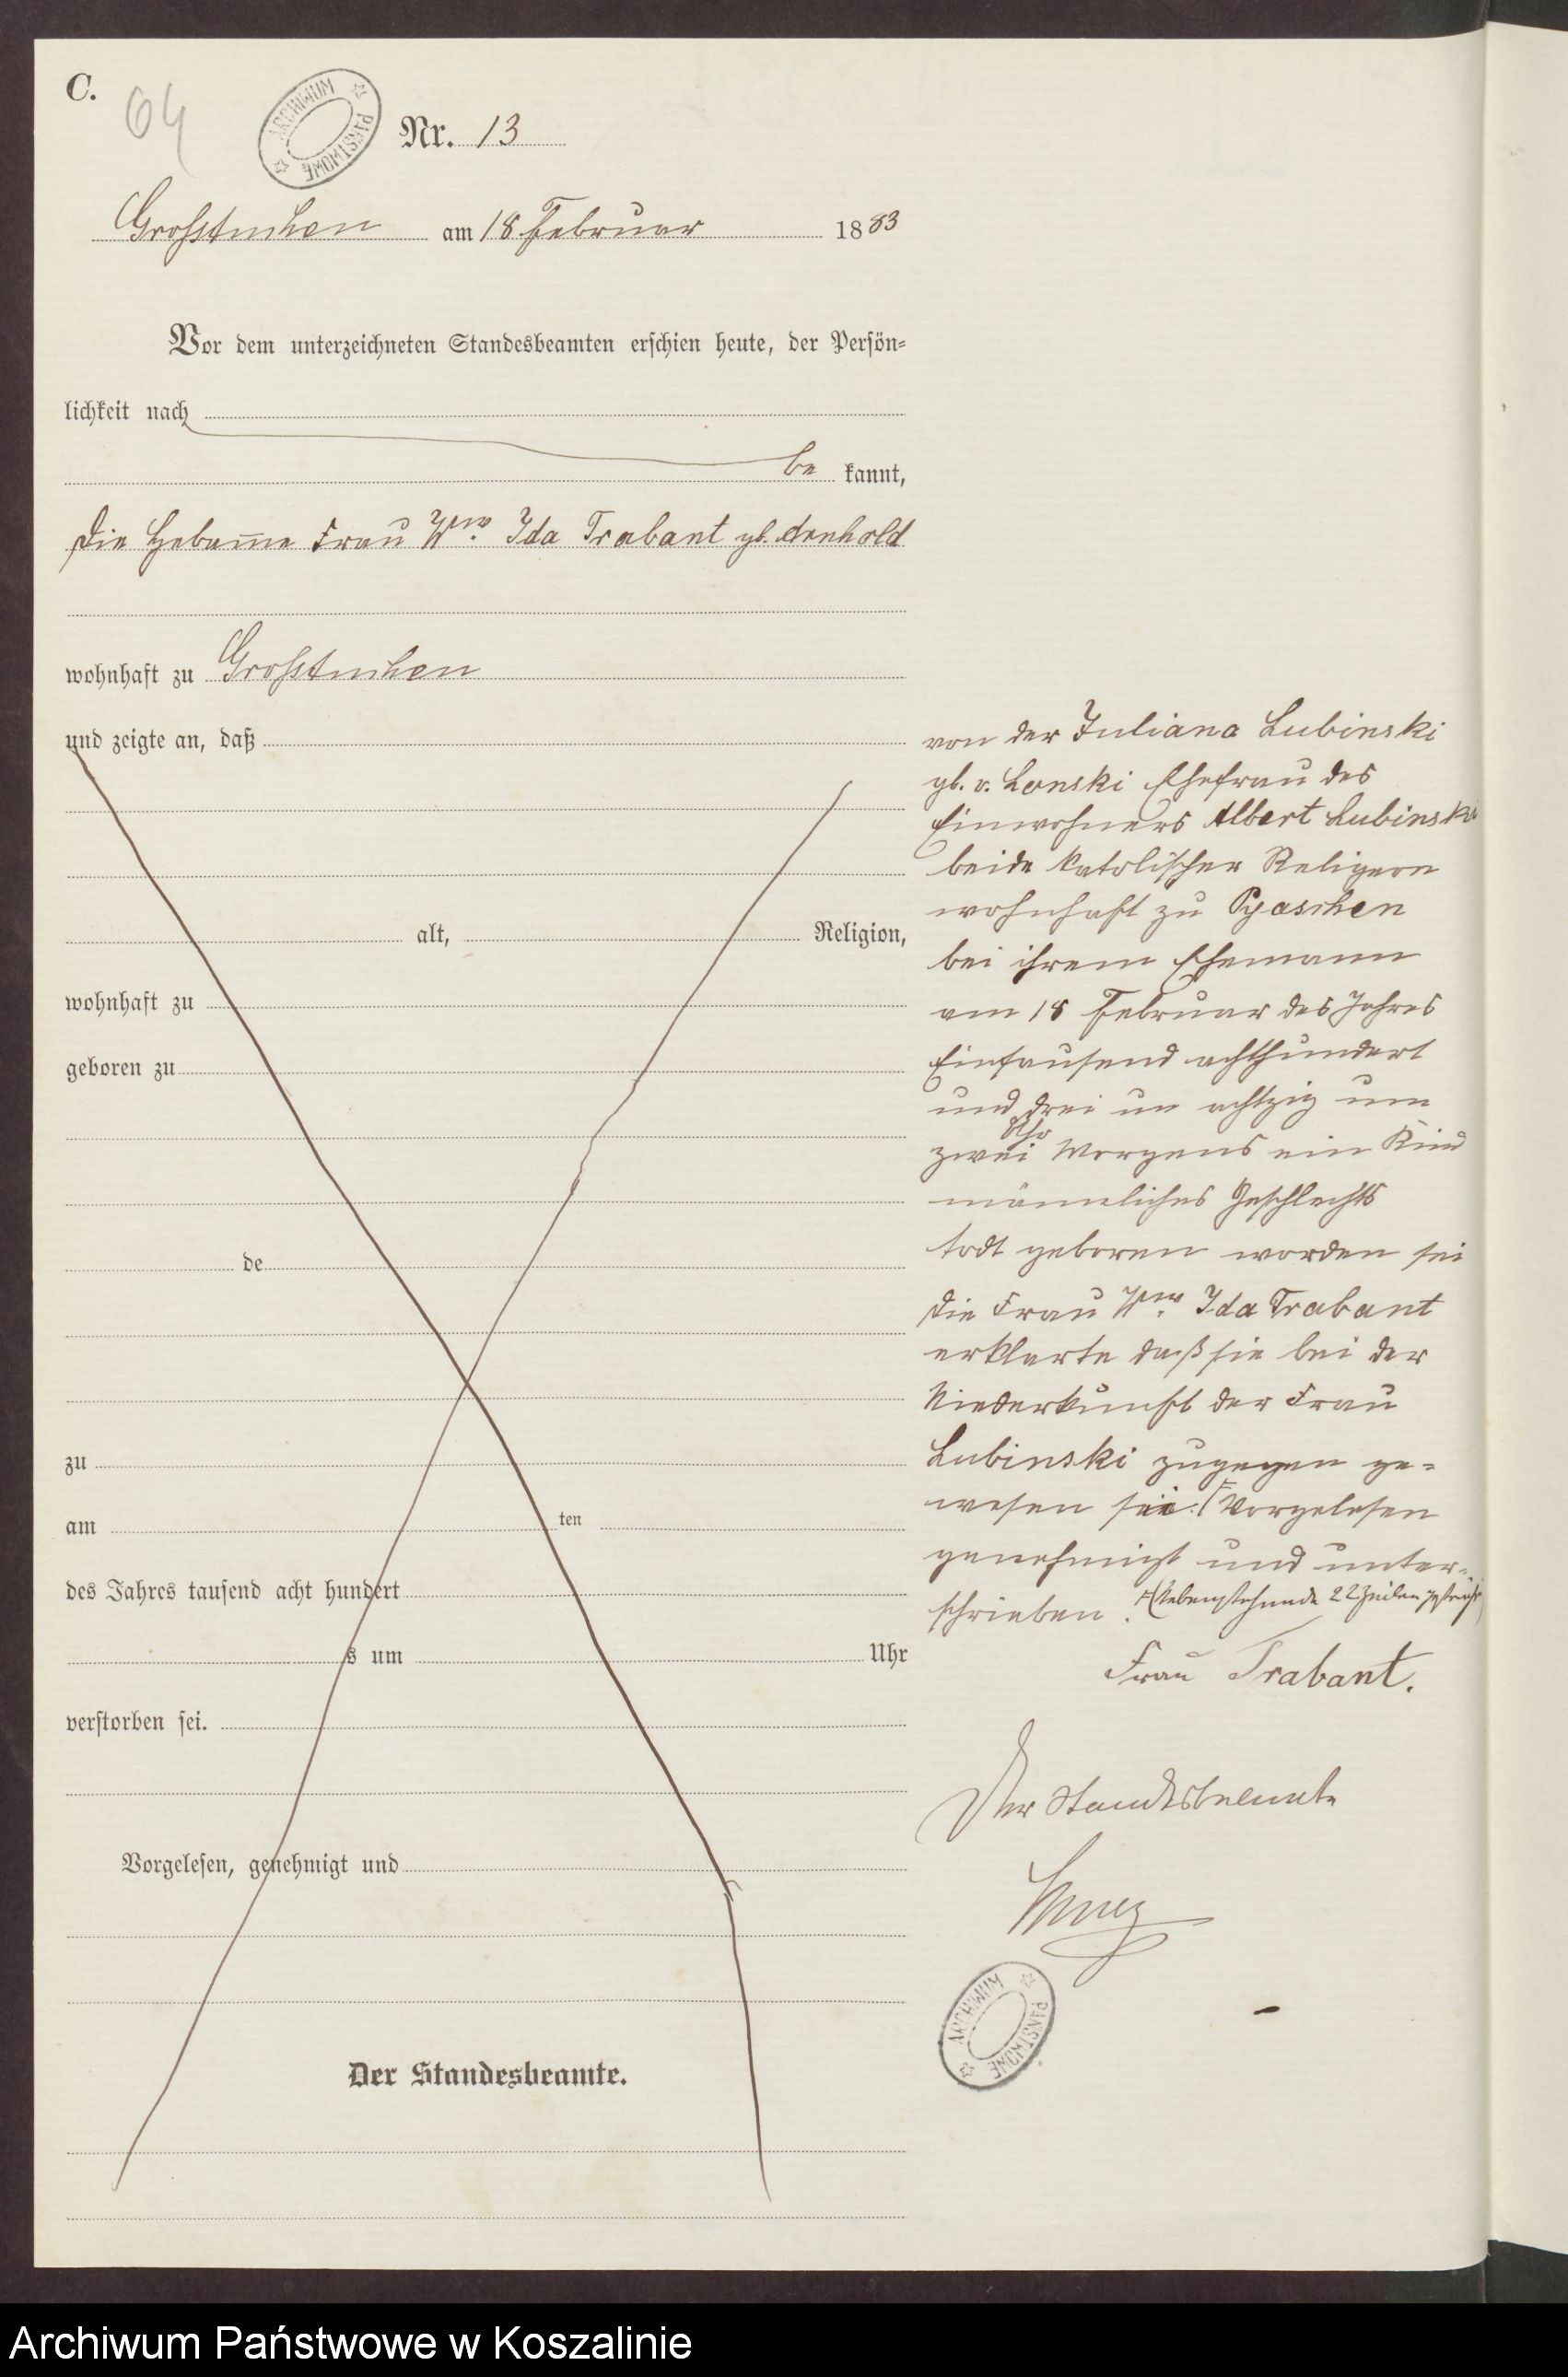 C.
64
ARCHIWUM PAŃSTWOWE
Nr. 13
Grosstuchen am 18 Februar 1883
Vor dem unterzeichneten Standesbeamten erschien heute, der Persön-
lichkeit nach
be kannt,
die Hebamme Frau Wwe. Ida Trabant gb.
wohnhaft zu Grosstuchen
und zeigte an, daß
alt, Religion,
wohnhaft zu
geboren zu
de
zu
am ten
des Jahres tausend acht hundert
s um Uhr
verstorben sei.
Vorgelesen, genehmigt und
Der Standesbeamte.
von der Juliana Lubinski
gb. v. Lonski Ehefrau des
Einwohners Albert Lubinski
beide katolischer Religion
wohnhaft zu Pyaschen
bei ihrem Ehemann
am 18 Februar des Jahres
Eintausend achthundert
und drei un achtzig um
zwei Uhr Morgens ein Kind
männliches Geschlechts
todt geboren worden sei
die Frau Wwe. Ida Trabant
erklarte daß sie bei der
Niederkunft der Frau
Lubinski zugegen ge-
wesen sei. Vorgelesen
genehmigt und unter-
schrieben. (Nebenstehende 22 Zeilen
Frau Trabant.
Der Standesbeamte
ARCHIWUM PAŃSTWOWE
Archiwum Państwowe w Koszalinie